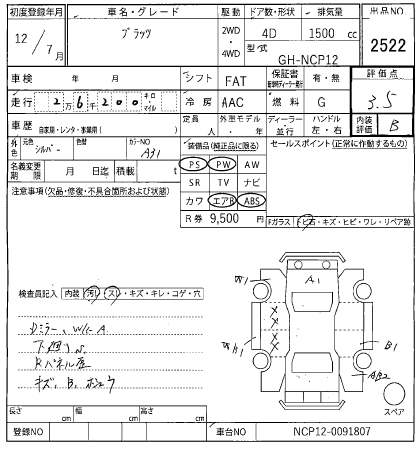 初度登録年月 車名・グレード 駆動 ドア数・形状 排気量 出品NO
12/7月 プラッツ 2WD・4WD 4D 1500 cc 2522
型式 GH-NCP12
車検 年 月 シフト FAT 保証書 有・無 評価点
走行 2万6千200 キロ・マイル 冷房 AAC 燃料 G 3.5
車歴 自家用・レンタ・事業用( ) 定員 人 外車モデル 年 ディーラー・並行 ハンドル 左・右 内装評価 B
外色 元色 シルバー 色替 カラーNO A31 装備品(純正品に限る) セールスポイント(正常に作動するもの)
名義変更期限 月 日迄 積載 t PS PW AW
注意事項(欠品・修復・不具合箇所および状態) SR TV ナビ
カワ エアB ABS
R券 9,500円 Fガラス トビ石・キズ・ヒビ・ワレ・リペア跡
A1
検査員記入 内装 汚レ スレ・キズ・キレ・コゲ・穴
Dミラー、W/C A
下廻り S
Rパネル歪
キズ、B、
B1
AB2
スペア
長さ cm 幅 cm 高さ cm
登録NO 車台NO NCP12-0091807